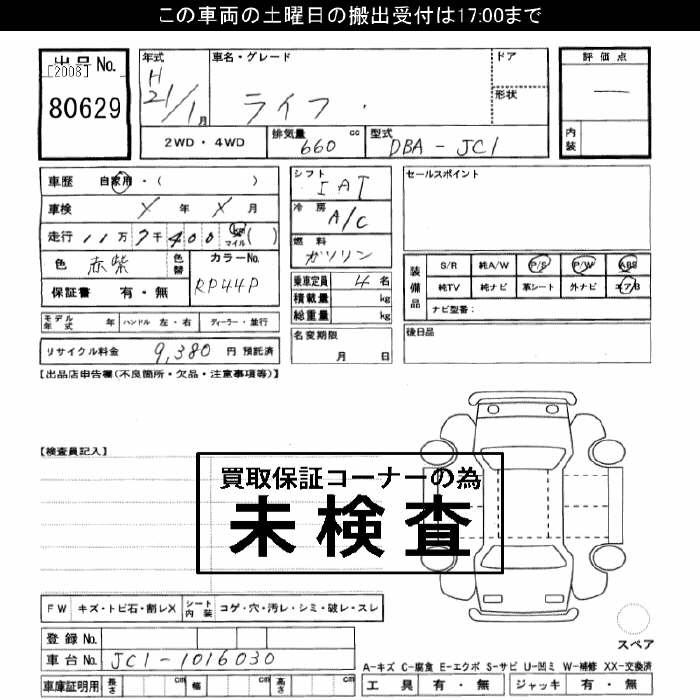 この車両の土曜日の搬出受付は17:00まで
出品No.
[2008]
80629
年式
H
21/1月
車名・グレード
ライフ
ドア
形状
評価点
内装
2WD・4WD
排気量
660
cc
型式
DBA-JC1
車歴 自家用・( )
車検 X 年 X 月
走行 11万7千400 km マイル( )
色 赤紫
色替
カラーNo.
RP44P
保証書 有・無
モデル年式 年 ハンドル 左・右 ディーラー・並行
リサイクル料金 9,380 円 預託済
シフト
IAT
冷房
A/C
燃料
ガソリン
乗車定員 4 名
積載量 kg
総重量 kg
名変期限
月 日
セールスポイント
装備品
S/R 純A/W P/S P/W ABS
純TV 純ナビ 革シート 外ナビ エアB
ナビ型番:
後日品
【出品店申告欄(不良箇所・欠品・注意事項等)】
【検査員記入】
買取保証コーナーの為
未検査
FW キズ・トビ石・割レX シート内装 コゲ・穴・汚レ・シミ・破レ・スレ
登録No.
車台No. JC1-1016030
車庫証明用 長さ cm 幅 cm 高さ cm
スペア
A-キズ C-腐食 E-エクボ S-サビ U-凹ミ W-補修 XX-交換済
工具 有・無 ジャッキ 有・無